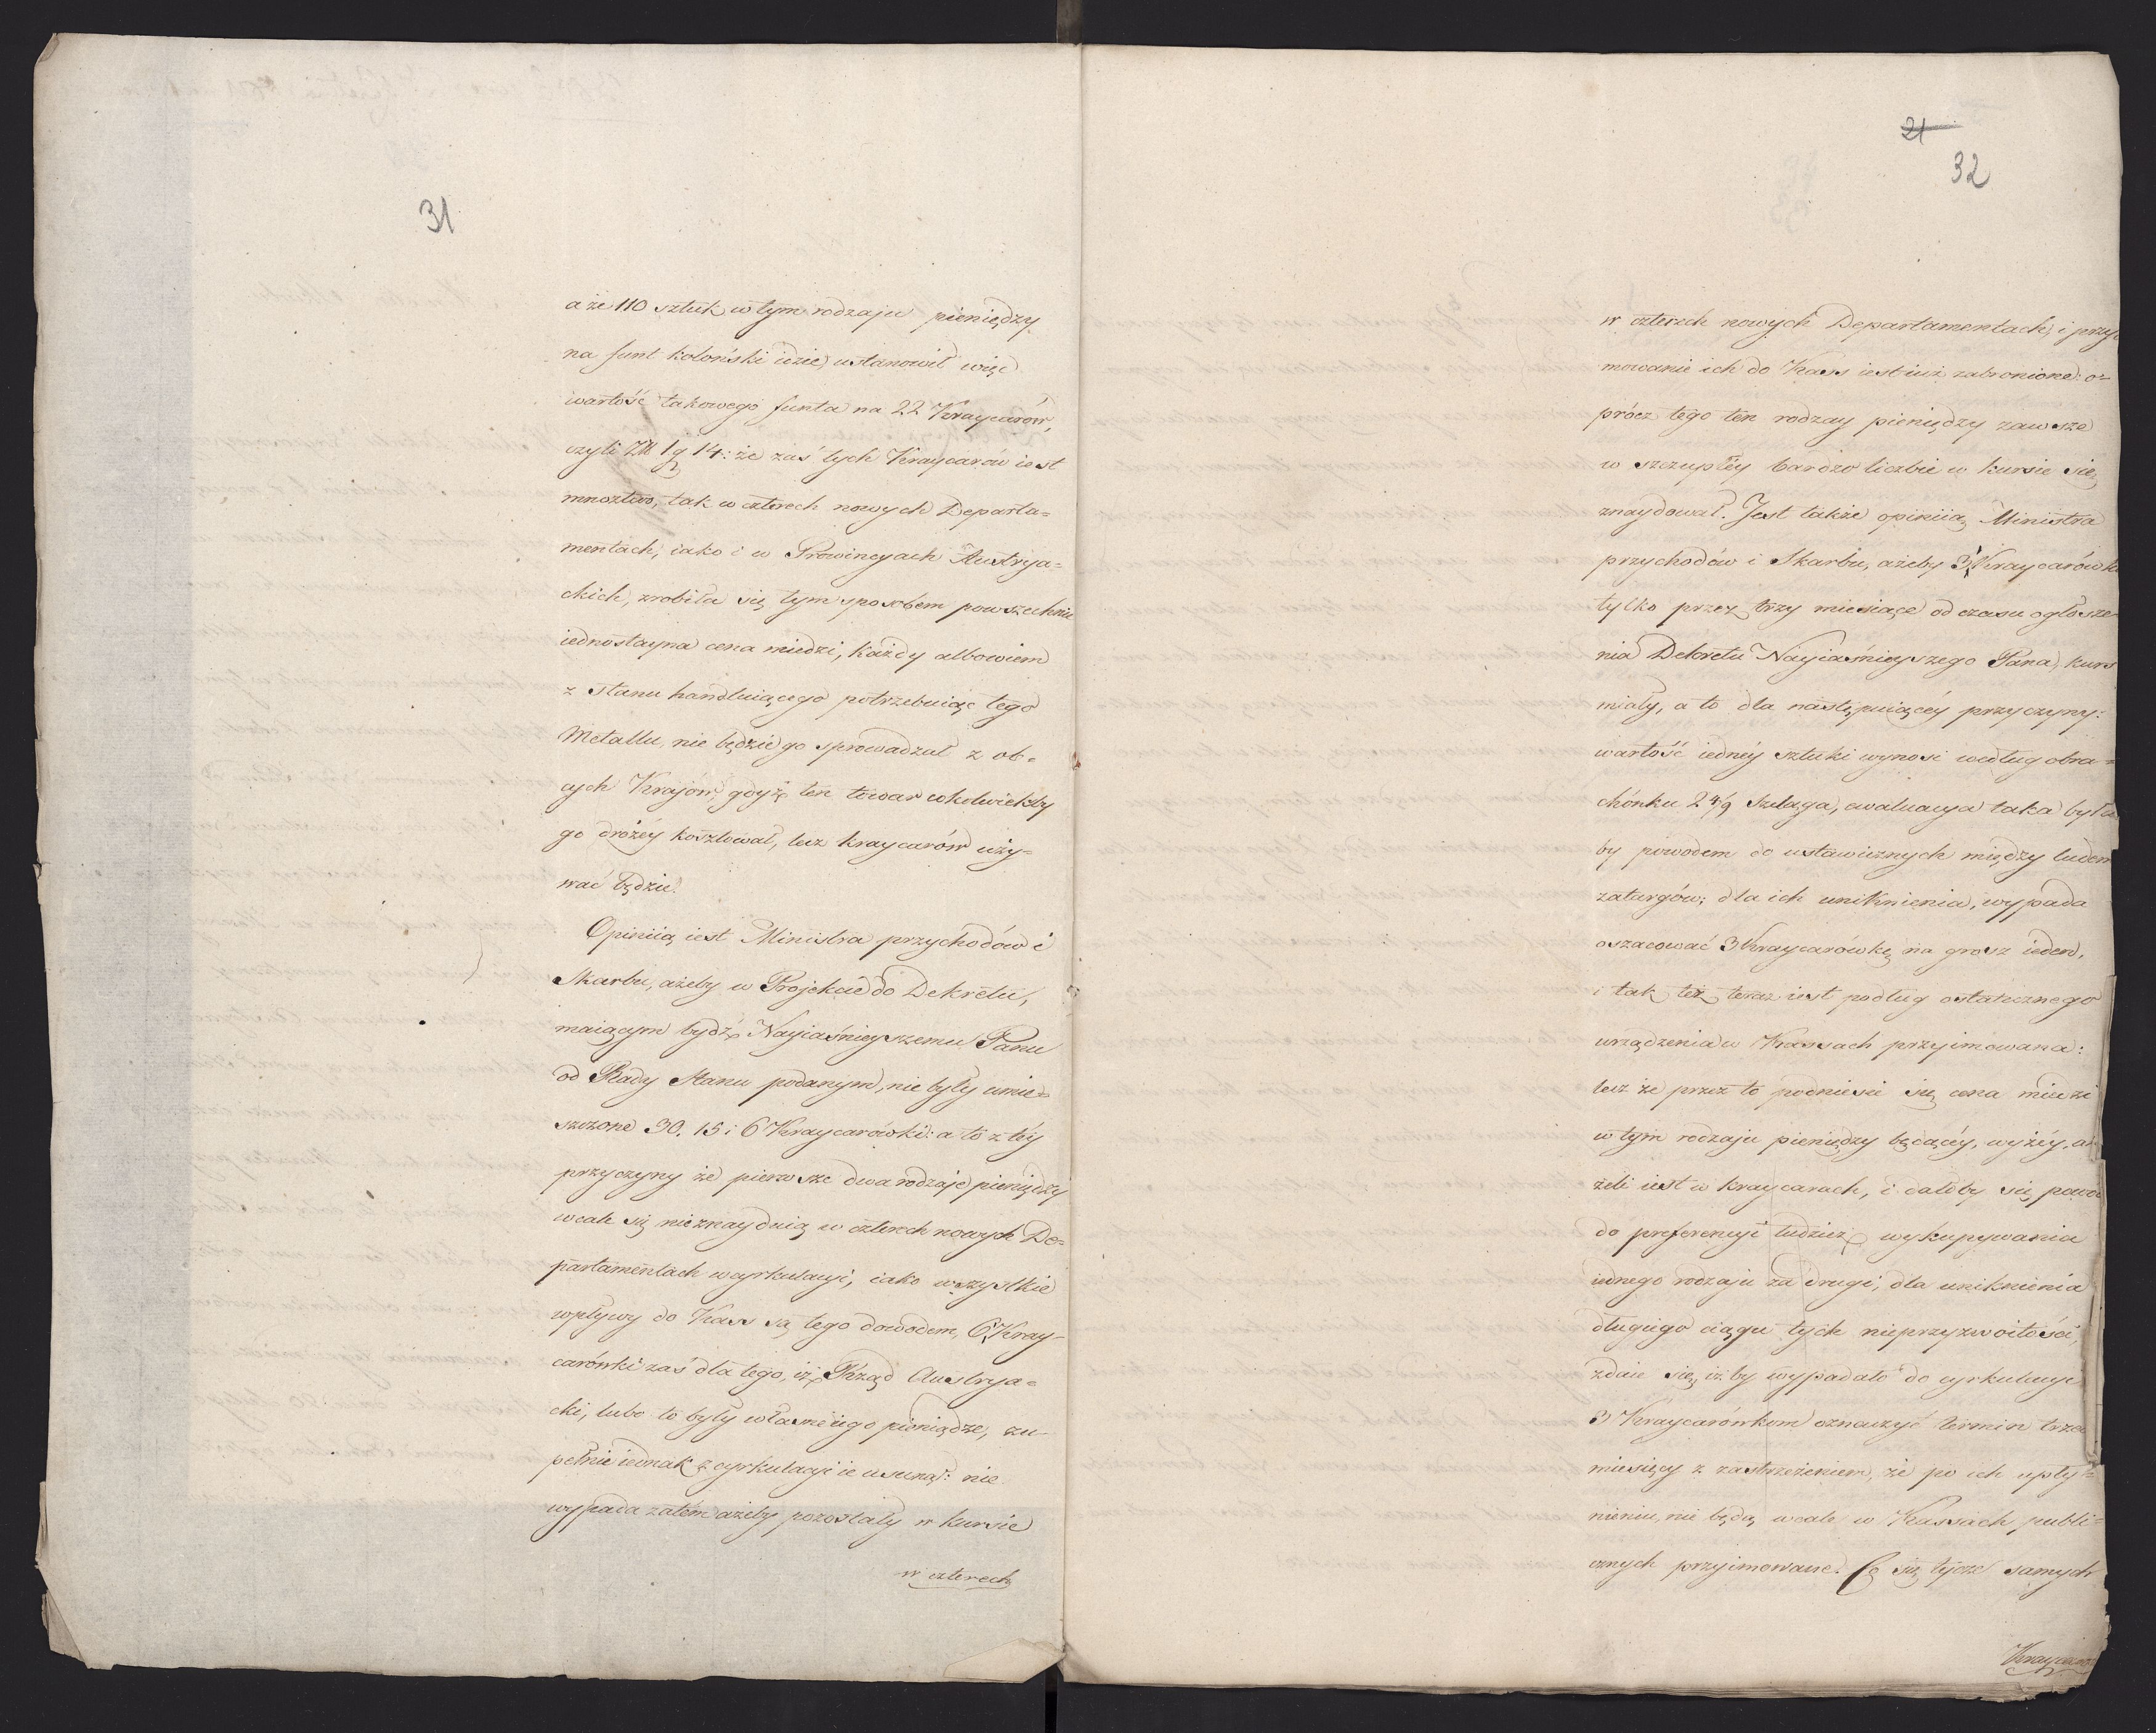 31
a że 110 sztuk w tym rodzaju pieniędzy
na funt koloński idzie, ustanowił więc
wartość takowego funta na 22 Kraycarów,
czyli Złł 1 g 14: że zaś tych Kraycarów iest
mnoztwo, tak w czterech nowych Departa=
mentach, iako i w Prowincyach Austrya=
ckich, zrobiła się tym sposobem powszechnie
iednostayna cena miedzi, każdy albowiem
z stanu handluiącego potrzebuiąc tego
Metallu, nie będzie go sprowadzał z ob=
cych Krajów, gdyż ten towar cokolwiekby
go drożéy kosztował, lecz kraycarów uży=
wać będzie.
Opiniią iest Ministra przychodów i
Skarbu, ażeby w Projekcie do Dekretu,
maiącym bydź Nayiaśnieyszemu Panu
od Rady Stanu podanym, nie były umie=
szczone 30. 15 i 6 Kraycarówki: a to z téy
przyczyny że pierwsze dwa rodzaje pieniędzy
wcale się nieznayduią w czterech nowych De=
partamentach w cyrkulacyi, iako wszystkie
wpływy do Kass są tego dowodem, 6 Kray=
carówki zaś dla tego, iż Rząd Austrya=
cki, lubo to były własne iego pieniądze, zu=
pełnie iednak z cyrkulacyi ie usunął: nie
wypada zatém ażeby pozostały w kursie
w czterech
21
32
w czterech nowych Departamentach, i przy
mowanie ich do Kass iest iuż zabronione: o=
prócz tego ten rodzay pieniędzy zawsze
w szczupłéy bardzo liczbie w kursie się
znaydował. Jest także opiniią Ministra
przychodów i Skarbu, ażeby 3 Kraycarówki
tylko przez trzy miesiące od czasu ogłosze
nia Dekretu Nayiaśnieyszego Pana, kurs
miały, a to dla następuiącéy przyczyny:
wartość iednéy sztuki wynosi według obra=
chónku 2 4/9 Szeląga, ewaluacya taka była
by powodem do ustawicznych między ludem
zatargów; dla ich uniknienia, wypada
oszacować 3 Kraycarówkę na grosz ieden,
i tak też teraz iest podług ostatecznego
urządzenia w Kassach przyimowana:
lecz że przez to podniesie się cena miedzi
w tym rodzaju pieniędzy będącéy, wyżéy, a
żeli iest w kraycarach, i dałby się powo
do preferencyi tudzież wykupywania
iednego rodzaju za drugi; dla uniknienia
długiego ciągu tych nieprzyzwoitości,
zdaie się, iż by wypadało do cyrkulacyi
3 Kraycarówkom oznaczyć termin trze
miesięcy z zastrzeżeniem, że po ich upły=
nieniu, nie będą wcale w Kassach publi=
cznych przyimowane. Co się tycze samych